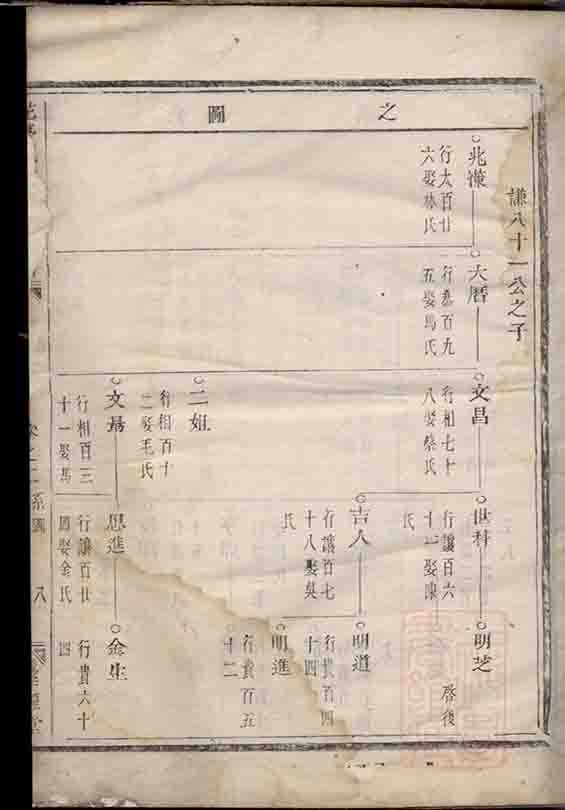 之圖
謙八十一公之子
兆懷
行太百廿
六娶林氏
大曆
行悉百九
五娶馬氏
文昌
行相七十
八娶蔡氏
世科
行讓百六
十一娶康
氏
明芝
啓後
吉人
行讓百七
十八娶吳
氏
明道
行貴百四
十四
明進
行貴百五
十二
二姐
行相百十
二娶毛氏
行相百三
十一娶馬
思進
行讓百廿
周娶金氏
金生
行貴六十
四
八